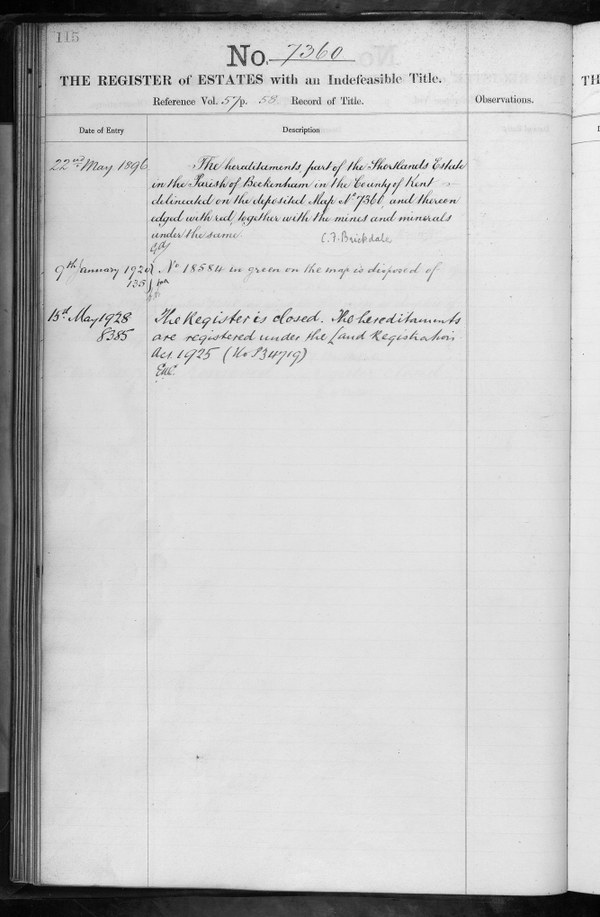 115
No. 7360
THE REGISTER of ESTATES with an Indefeasible Title.
Reference Vol. 57 p. 58 Record of Title.
Observations.
TH
Date of Entry
Description
22nd May 1896
The heraditaments part of the Shortlands Estate
in the Parish of Beckenham in the County of Kent
delineated on the deposited Map No 7360, and thereon
edged with red, together with the mines and minerals
under the same
C.F. Brickdale
9th January 192
No 18584 in green on the map is disposed of
135
15th May 1928
8385
The Register is closed. The hereditaments
are registered under the Land Registration
Act 1925 (No P34719)